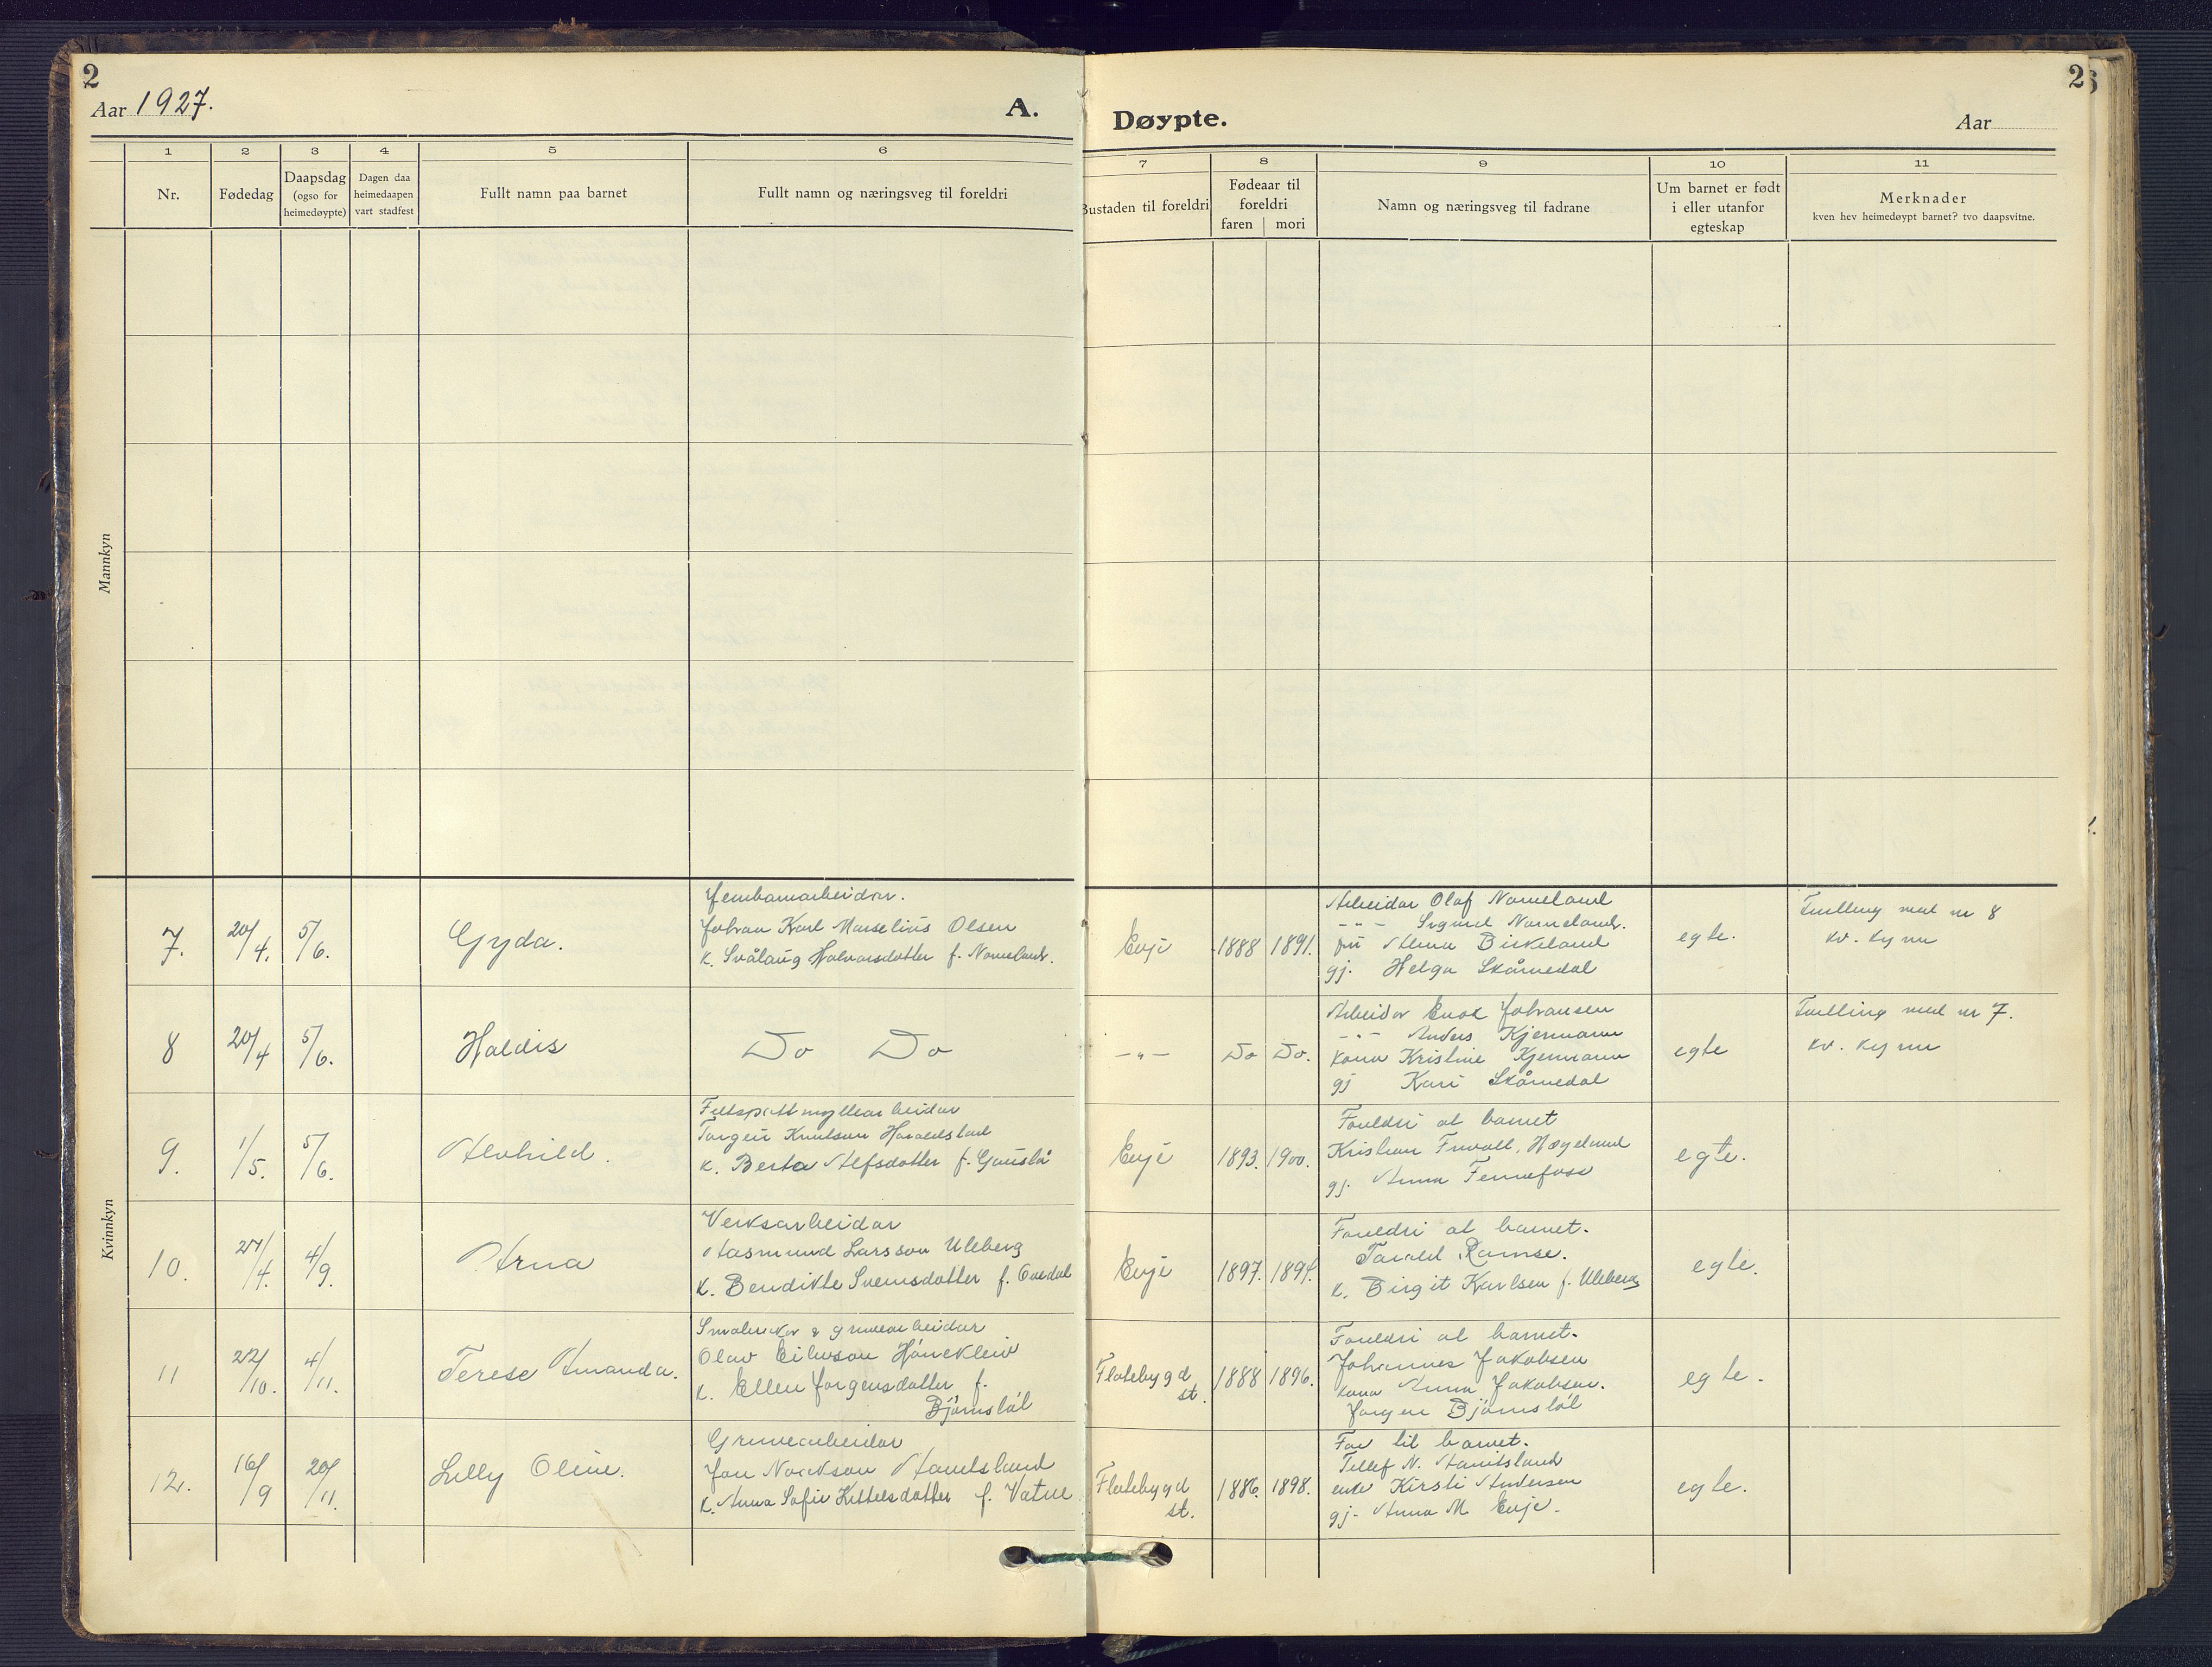 2
Aar 1927.
A.
Døypte.
Aar
2
1
2
3
4
5
6
7
8
9
10
11
Nr.
Fødedag
Daapsdag
(ogso for
heimedøypte)
Dagen daa
heimedaapen
vart stadfest
Fullt namn paa barnet
Fullt namn og næringsveg til foreldri
Bustaden til foreldri
Fødeaar til
foreldri
faren
mori
Namn og næringsveg til fadrane
Um barnet er født
i eller utanfor
egteskap
Merknader
kven hev heimedøypt barnet? tvo daapsvitne.
Mannkyn
Kvinnkyn
7.
20/4.
5/6.
Gyda.
Johan Karl Marselius Olsen
k. Svålaug Halvorsdotter f. Nomeland.
Evje
1888
1891.
Arbeidar Olaf Nomeland
-"- Sigurd Nomeland.
Alma Birkeland
gj. Helga Skåmedal
egte.
Tvilling med nr 8
kv. kynn
8
20/4
5/6.
Haldis
Do Do
-"-
Do
Do.
Arbeidar Enok Johansen
-"- Anders Kjermann
kona Kristine Kjermann
gj Kari Skåmedal
egte
Tvilling med nr 7.
kv. kynn
9.
1/5.
5/6.
Alvhild.
Feltspattmyllearbeidar
Torgeir Knutson Haraldstad
k. Berta Alfsdotter f. Gauslå
Evje
1893.
1900.
Foreldri at barnet
Kristian Hægeland
gj. Anna Fennefoss
egte.
10.
27/4.
4/9.
Arna
Verksarbeidar
Aasmund Larsson Uleberg
k. Bendikte Sveinsdotter f.
Evje
1897.
1894.
Foreldri at barnet.
Tarald Ramse.
k. Birgit Karlsen f. Uleberg
egte.
11
22/10.
4/11.
Terese Amanda.
Småbrukar & gruvearbeidar
Olav Eilevson Hånekleiv
k. Ellen Jørgensdotter f.
Bjørnstøl
Flatebygd
st.
1888
1896.
Foreldri at barnet.
Johannes Jakobsen
kona Anna Jakobsen.
Jørgen Bjørnstøl
egte.
12.
16/9
20/11.
Lilly Oline.
Gruvearbeidar
Jon
k. Anna Sofie Kittelsdotter f. Vatne
Flatebygd
st.
1886.
1898.
Far til barnet.
Tellef N.
enke Kirsti Andersen
gj. Anna M. Evje.
egte.